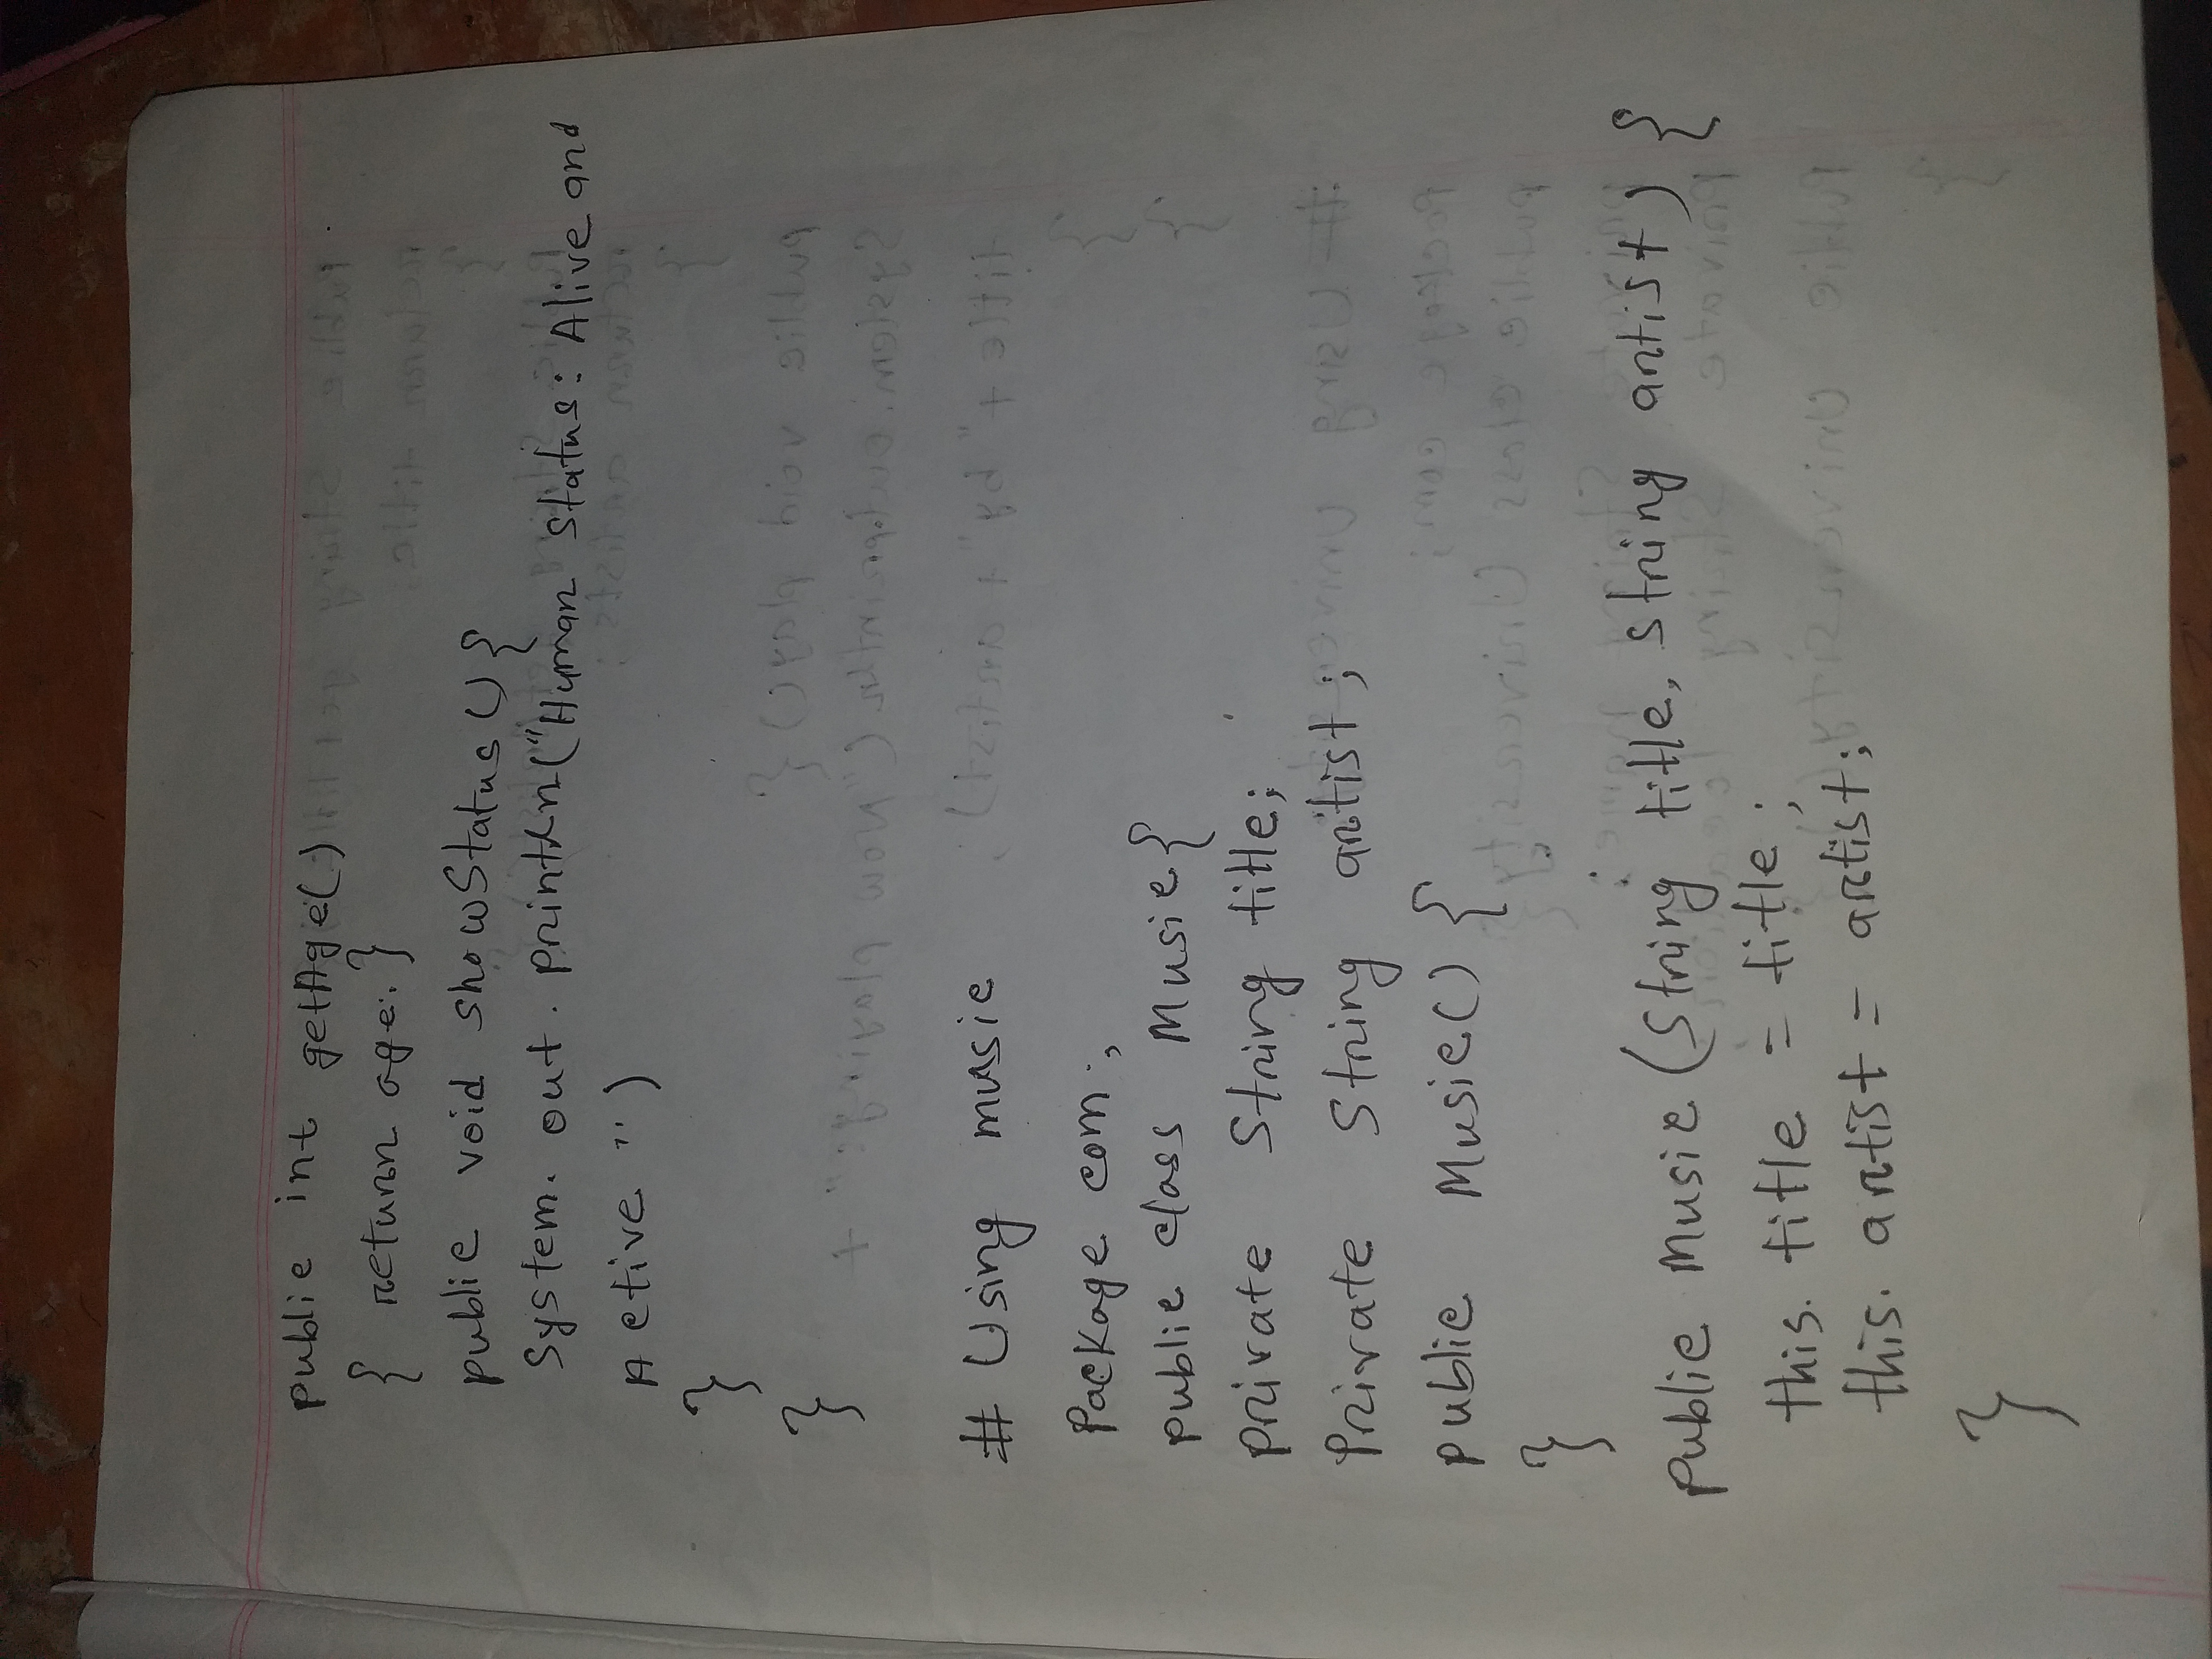 public int getAge()
{ return age; }
public void showStatus() {
System. out. println("Human Status: Alive and
Active ")
}
}
# Using music
Package com;
public class Music {
private String title;
Private String artist;
public Music() {
}
public Music (String title, String artist) {
this. title = title;
this. artist = artist;
}